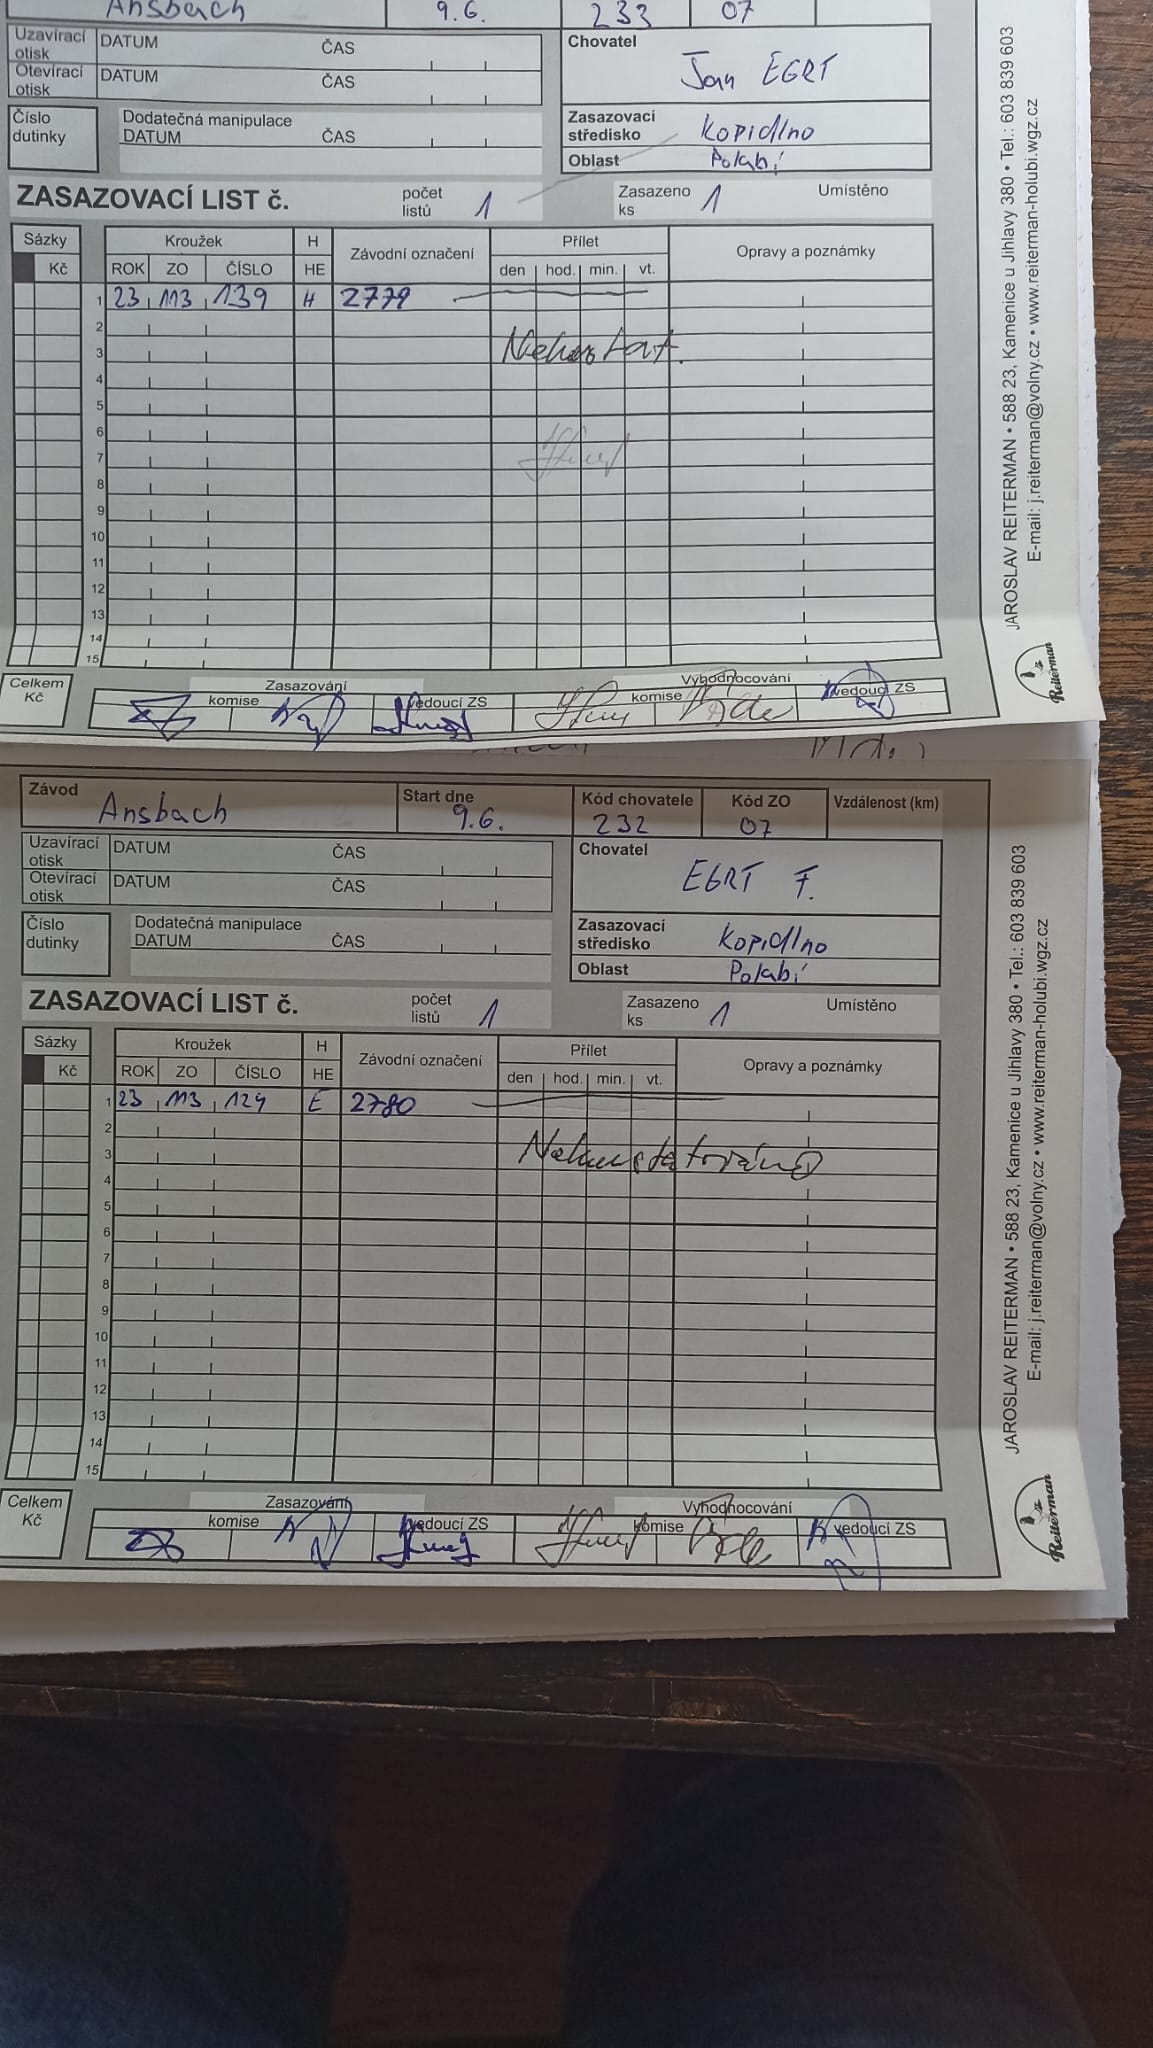 Ansbach 9.6. 233 07
Uzavírací otisk DATUM ČAS
Otevírací otisk DATUM ČAS
Chovatel
Jan EGRT
Číslo dutinky
Dodatečná manipulace
DATUM ČAS
Zasazovací středisko Kopidlno
Oblast Polabí
ZASAZOVACÍ LIST č. počet listů 1 Zasazeno ks 1 Umístěno
Sázky Kroužek H Závodní označení Přílet Opravy a poznámky
Kč ROK ZO ČÍSLO HE den hod. min. vt.
1 23 113 139 H 2779
2
3 Nekonstat.
4
5
6
7
8
9
10
11
12
13
14
15
Celkem Kč
Zasazování Vyhodnocování
komise vedoucí ZS komise vedoucí ZS
JAROSLAV REITERMAN • 588 23, Kamenice u Jihlavy 380 • Tel.: 603 839 603
E-mail: j.reiterman@volny.cz • www.reiterman-holubi.wgz.cz
Reiterman
Závod Ansbach Start dne 9.6. Kód chovatele 232 Kód ZO 07 Vzdálenost (km)
Uzavírací otisk DATUM ČAS
Otevírací otisk DATUM ČAS
Chovatel
EGRT F.
Číslo dutinky
Dodatečná manipulace
DATUM ČAS
Zasazovací středisko Kopidlno
Oblast Polabí
ZASAZOVACÍ LIST č. počet listů 1 Zasazeno ks 1 Umístěno
Sázky Kroužek H Závodní označení Přílet Opravy a poznámky
Kč ROK ZO ČÍSLO HE den hod. min. vt.
1 23 113 124 E 2780
2
3 Nekonstatováno
4
5
6
7
8
9
10
11
12
13
14
15
Celkem Kč
Zasazování Vyhodnocování
komise vedoucí ZS komise vedoucí ZS
JAROSLAV REITERMAN • 588 23, Kamenice u Jihlavy 380 • Tel.: 603 839 603
E-mail: j.reiterman@volny.cz • www.reiterman-holubi.wgz.cz
Reiterman